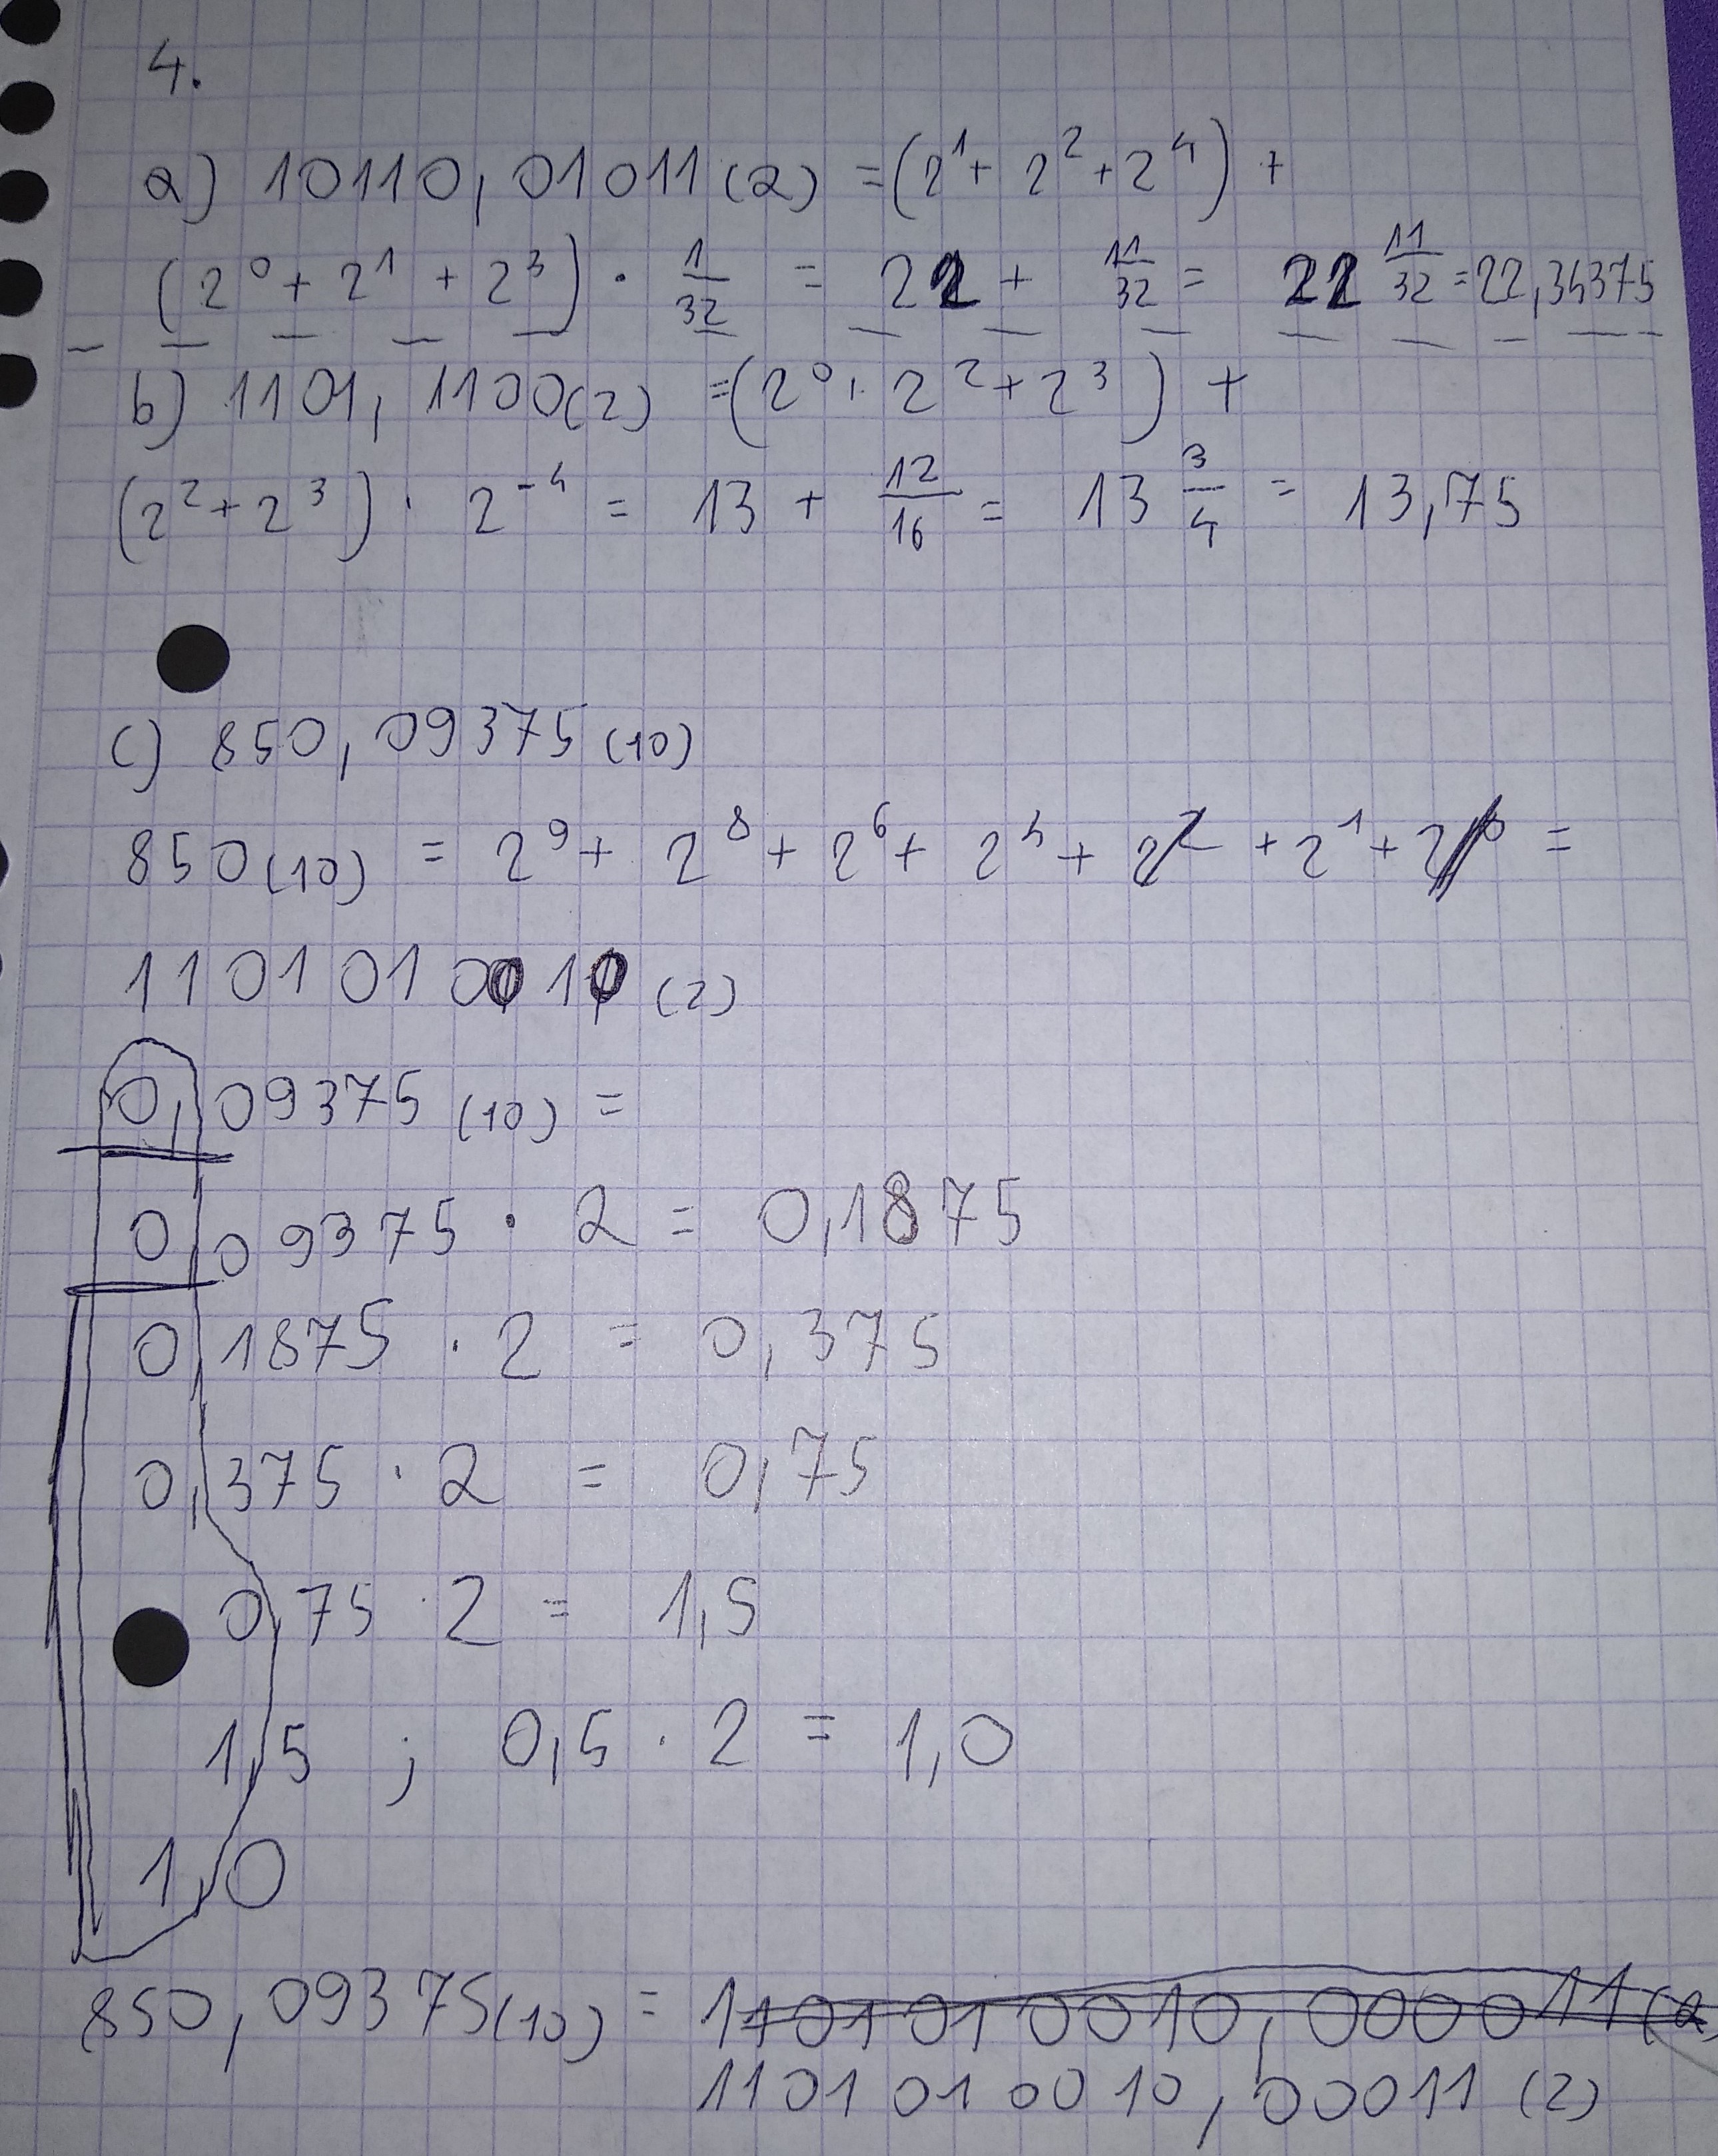 4.
a) 10110,01011(2) = (2¹ + 2² + 2⁴) +
(2⁰ + 2¹ + 2³) · 1/32 = 22 + 11/32 = 22 11/32 = 22,34375
b) 1101,1100(2) = (2⁰ + 2² + 2³) +
(2² + 2³) · 2⁻⁴ = 13 + 12/16 = 13 3/4 = 13,75
c) 850,09375(10)
850(10) = 2⁹ + 2⁸ + 2⁶ + 2⁴ + + 2¹ + =
1101010010(2)
0,09375(10) =
0,09375 · 2 = 0,1875
0,1875 · 2 = 0,375
0,375 · 2 = 0,75
0,75 · 2 = 1,5
1,5 ; 0,5 · 2 = 1,0
1,0
850,09375(10) = 1101010010,000011(2)
1101010010,00011(2)